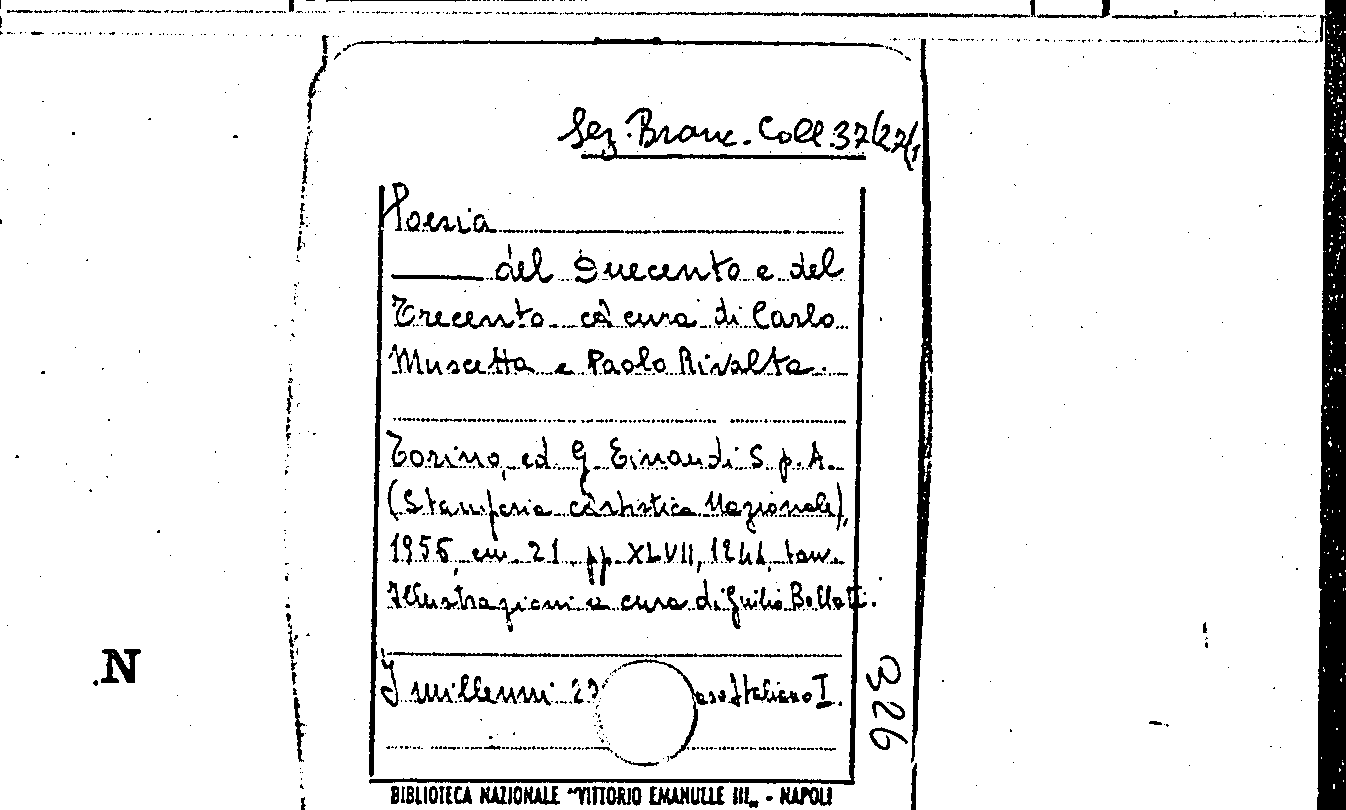 Sez. Branc. Coll. 37/27/1
Poesia
del Duecento e del
Trecento a cura di Carlo
Muscetta e Paolo Rivalta.
Torino, ed. G. Einaudi S.p.A.
(Stamperia artistica Nazionale),
1956, cm. 21 pp. XLVII, 1241, tav.
Illustrazioni a cura di Giulio Bollati.
I millenni 23 Italiano I.
326
N
BIBLIOTECA NAZIONALE "VITTORIO EMANULLE III„ - NAPOLI